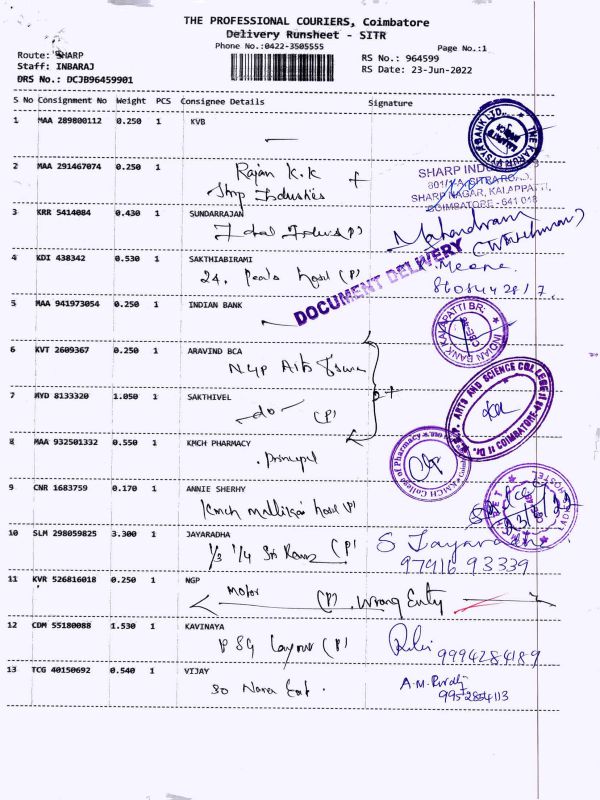 THE PROFESSIONAL COURIERS, Coimbatore
Delivery Runsheet - SITR
Phone No.:0422-3505555
Page No.:1
Route: SHARP
Staff: INBARAJ
DRS No.: DCJB96459901
RS No.: 964599
RS Date: 23-Jun-2022
S No Consignment No Weight PCS Consignee Details Signature
1 MAA 289800112 0.250 1 KVB
2 MAA 291467074 0.250 1
Rajan K.K
SHARP NAGAR, KALAPPATTI,
COIMBATORE - 641 048
3 KRR 5414084 0.430 1 SUNDARRAJAN
(Watchman)
4 KDI 438342 0.530 1 SAKTHIABIRAMI
24, Pearls hostel (P)
Meena
DOCUMENT DELIVERY
5 MAA 941973054 0.250 1 INDIAN BANK
INDIAN BANK KALAPATTI BR.
6 KVT 2609367 0.250 1 ARAVIND BCA
NGP Arts
7 MYD 8133320 1.050 1 SAKTHIVEL
do (P)
ARTS AND SCIENCE COLLEGE
8 MAA 932501332 0.550 1 KMCH PHARMACY
Principal
KMCH College of Pharmacy
9 CNR 1683759 0.170 1 ANNIE SHERHY
Kmch mallikai hostel (P)
23/6/22
10 SLM 298059825 3.300 1 JAYARADHA
(P)
S Jayaradha
97916 93339
11 KVR 526816018 0.250 1 NGP
Motor (P) Wrong Entry
12 CDM 55180088 1.530 1 KAVINAYA
PSG Layout (P)
9994284189
13 TCG 40150692 0.540 1 VIJAY
A.M.
9952854113